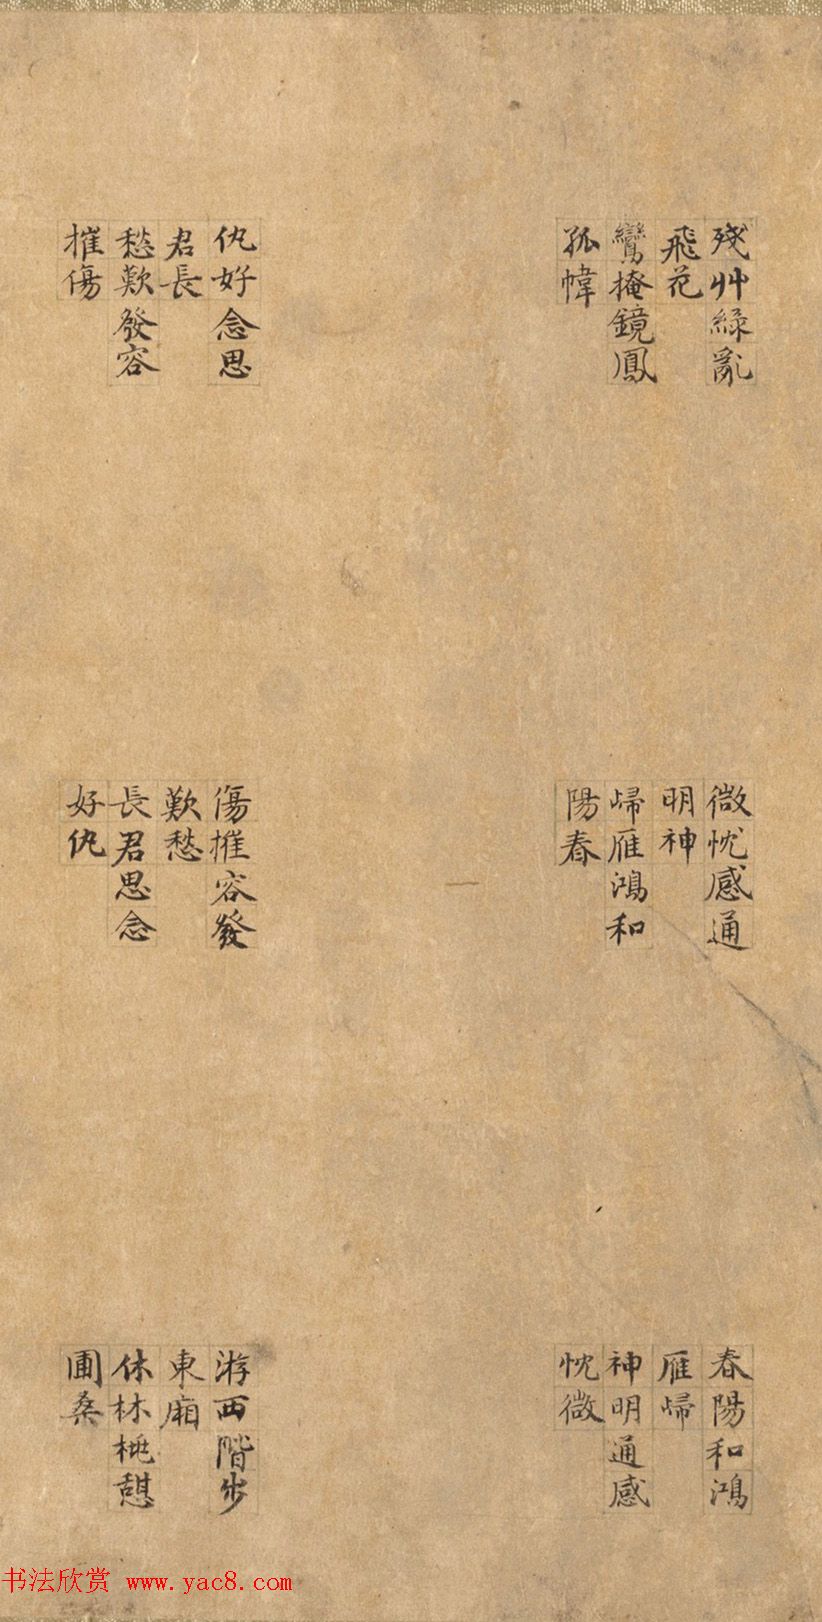 殘艸綠亂
飛花
鸞掩鏡鳳
孤幃
仇好念思
君長
愁歎發容
摧傷
微忱感通
明神
歸雁鴻和
陽春
傷摧容發
歎愁
長君思念
好仇
春陽和鴻
雁歸
神明通感
忱微
游西階步
東廂
休林桃憩
圃桑
书法欣赏 www.yac8.com